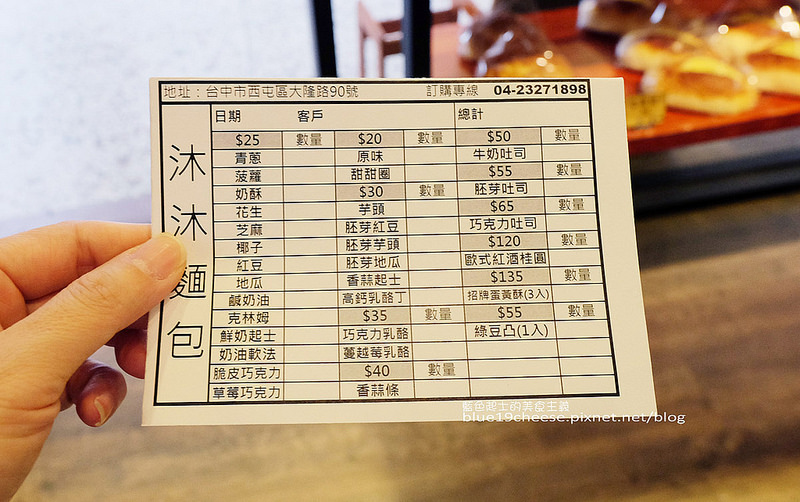 地址：台中市西屯區大隆路90號 訂購專線 04-23271898
沐沐麵包
日期 客戶 總計
$25 數量 $20 數量 $50 數量
青蔥 原味 牛奶吐司
菠蘿 甜甜圈 $55 數量
奶酥 $30 數量 胚芽吐司
花生 芋頭 $65 數量
芝麻 胚芽紅豆 巧克力吐司
椰子 胚芽芋頭 $120 數量
紅豆 胚芽地瓜 歐式紅酒桂圓
地瓜 香蒜起士 $135 數量
鹹奶油 高鈣乳酪丁 招牌蛋黃酥(3入)
克林姆 $35 數量 $55 數量
鮮奶起士 巧克力乳酪 綠豆凸(1入)
奶油軟法 蔓越莓乳酪
脆皮巧克力 $40 數量
草莓巧克力 香蒜條
藍色起士的美食主義
blue19cheese.pixnet.net/blog